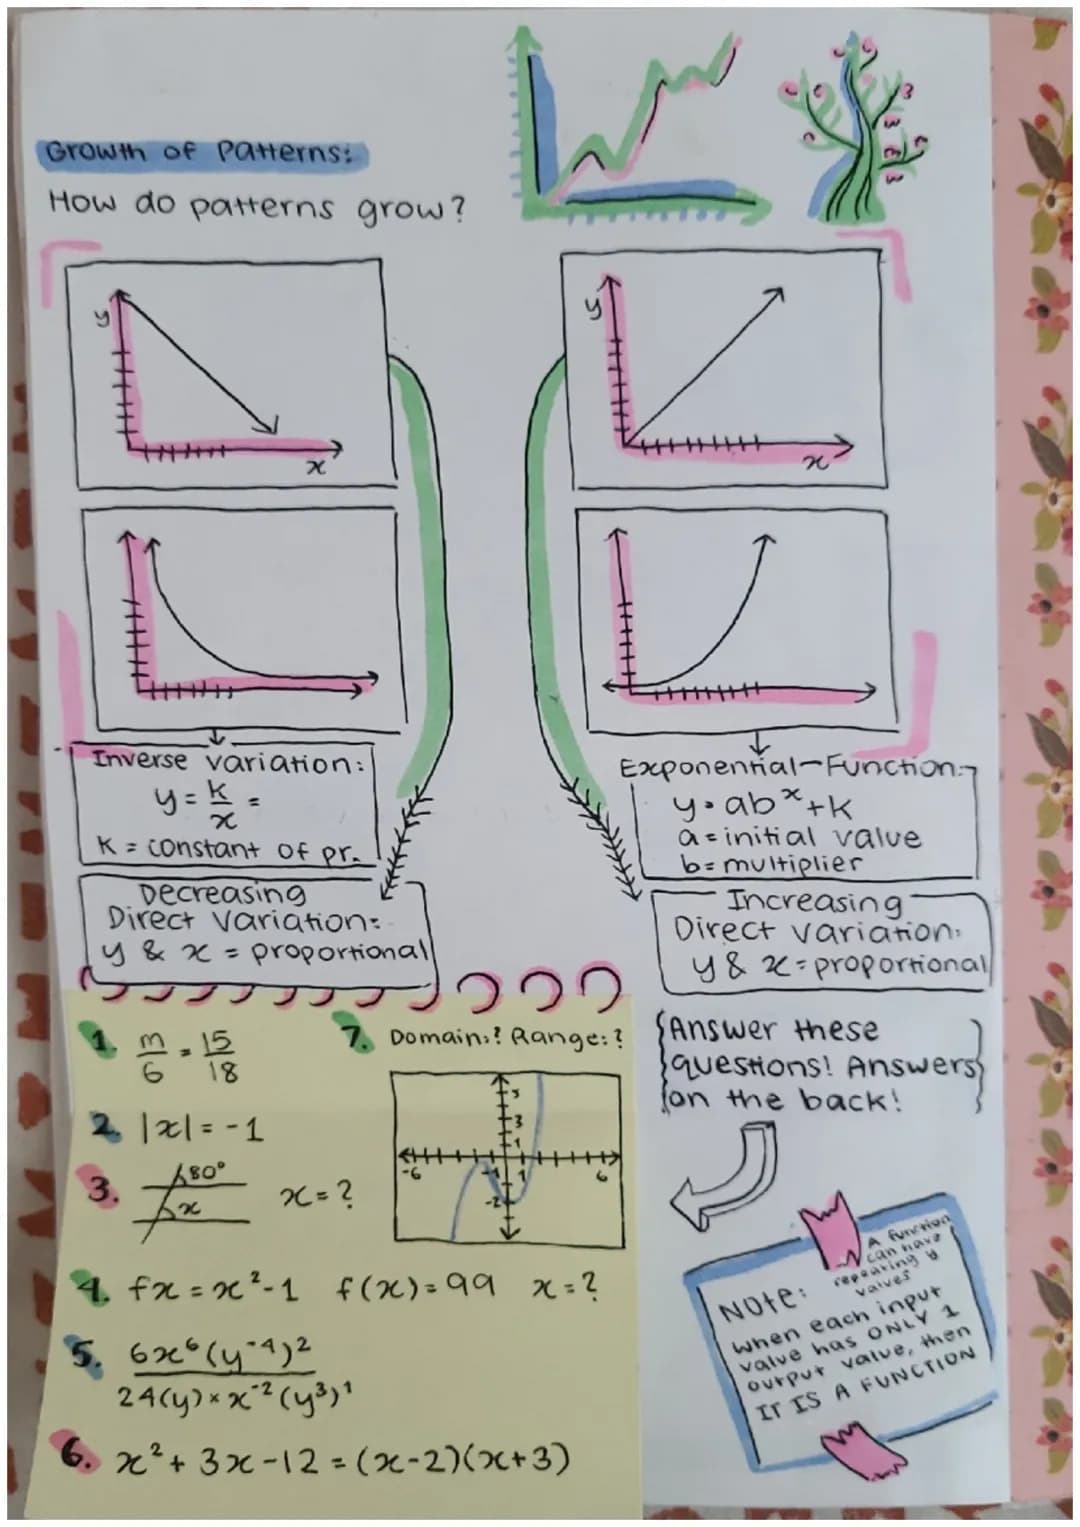 Growth of Patterns:
How do patterns grow?
y
x
y
x
Inverse variation:
y = k/x =
K = constant of pr.
Decreasing
Direct Variation:
y & x = proportional
Exponential-Function:
y = ab^x + k
a = initial value
b = multiplier
Increasing
Direct variation:
y & x = proportional
1. m/6 = 15/18
2. |x| = -1
3. 80° x x = ?
4. fx = x²-1 f(x) = 99 x = ?
5. 6x⁶(y⁻⁴)²
24(y) × x⁻²(y³)¹
6. x² + 3x - 12 = (x-2)(x+3)
7. Domain:? Range:?
5
3
1
-6 -1 1 6
-2
Answer these
questions! Answers
on the back!
A function
can have
repeating y
values
NOte:
when each input
value has ONLY 1
output value, then
IT IS A FUNCTION